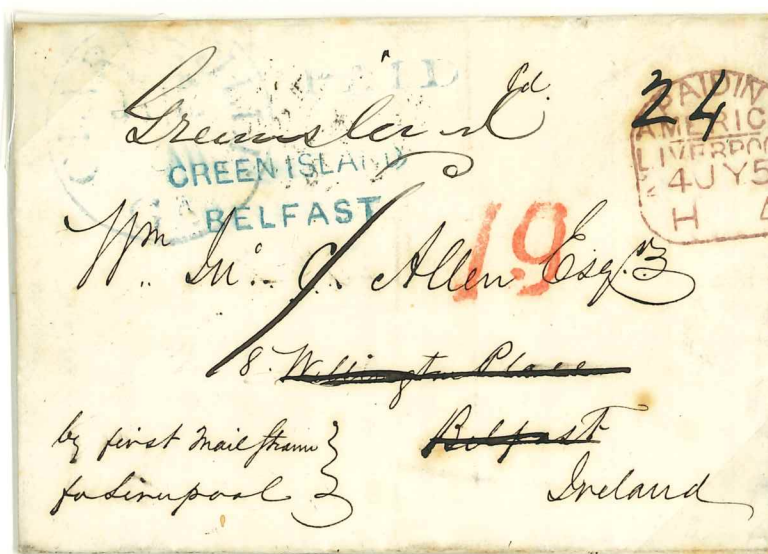 PAID
24
Greenisland
PAID IN
AMERIC
LIVERPOO
4 JY 5
H
GREEN ISLAND
BELFAST
19
Wm Mc. C. Allen Esqr.
8. Wellington Place
Belfast
Ireland
by first Mail Steam
to Liverpool